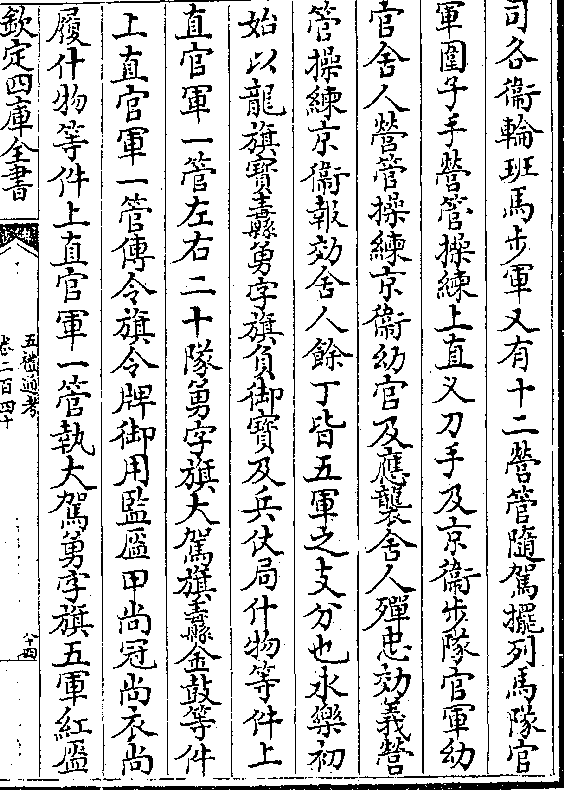 司各衞輪班馬步軍又有十二營管隨駕擺列馬隊官
軍圍子手營管操練上直乂刀手及京衞步隊官軍幼
官舍人營管操練京衞幼官及應襲舍人殫忠効義營
管操練京衞報効舍人餘丁皆五軍之支分也永樂初
始以龍旗寶纛勇字旗負御寶及兵仗局什物等件上
直官軍一管左右二十隊勇字旗大駕旗纛金鼓等件
上直官軍一管傳令旗令牌御用監盔甲尚冠尚衣尚
履什物等件上直官軍一管執大駕勇字旗五軍紅盔
欽定四庫全書
五禮通考
卷二百四十